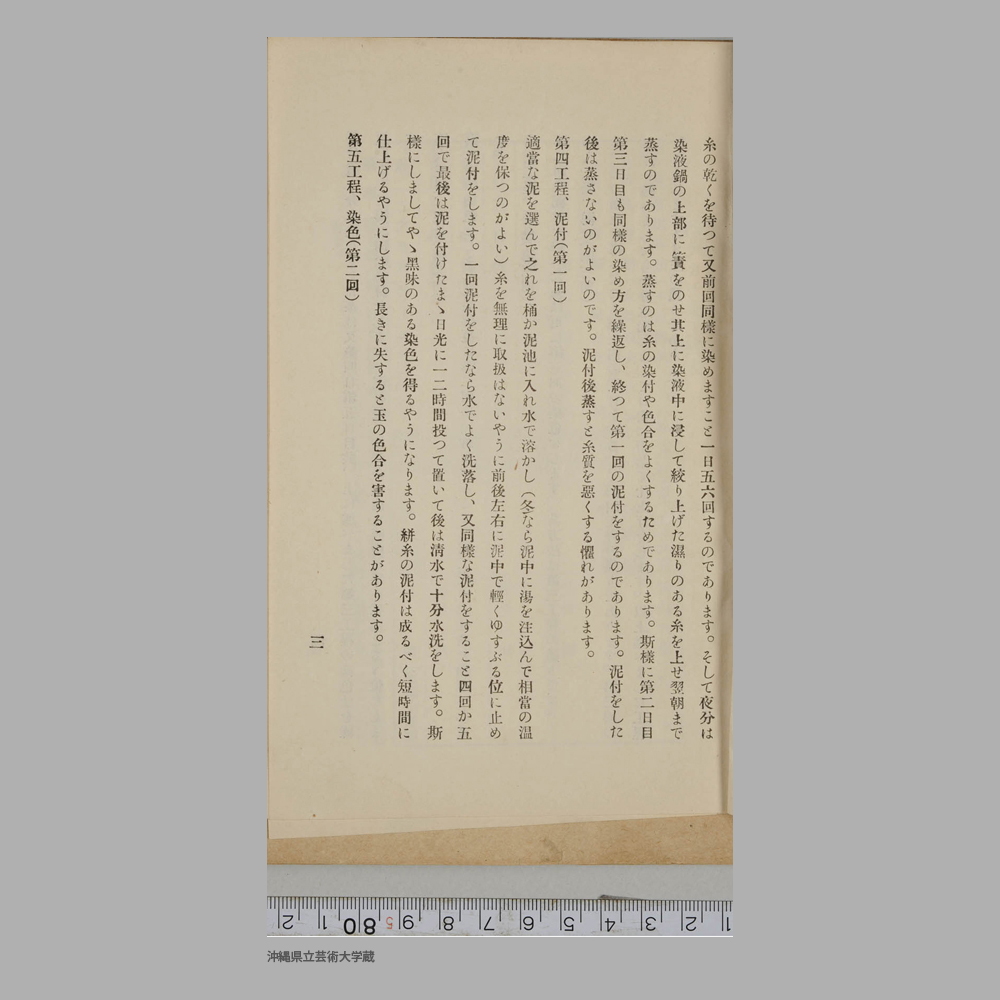 糸の乾くを待つて又前回同樣に染めますこと一日五六回するのであります。そして夜分は
染液鍋の上部に簀をのせ其上に染液中に浸して絞り上げた濕りのある糸を上せ翌朝まで
蒸すのであります。蒸すのは糸の染付や色合をよくするためであります。斯樣に第二日目
第三日目も同樣の染め方を繰返し、終つて第一回の泥付をするのであります。泥付をした
後は蒸さないのがよいのです。泥付後蒸すと糸質を惡くする懼れがあります。
第四工程、泥付(第一回)
適當な泥を選んで之れを桶か泥池に入れ水で溶かし(冬なら泥中に湯を注込んで相當の温
度を保つのがよい)糸を無理に取扱はないやうに前後左右に泥中で輕くゆすぶる位に止め
て泥付をします。一回泥付をしたなら水でよく洗落し、又同樣な泥付をすること四回か五
回で最後は泥を付けたまゝ日光に一二時間投つて置いて後は淸水で十分水洗をします。斯
樣にしましてやゝ黑味のある染色を得るやうになります。絣糸の泥付は成るべく短時間に
仕上げるやうにします。長きに失すると玉の色合を害することがあります。
第五工程、染色(第二回)
三
2 1 80 5 9 8 7 6 5 4 3 2 1
沖縄県立芸術大学蔵